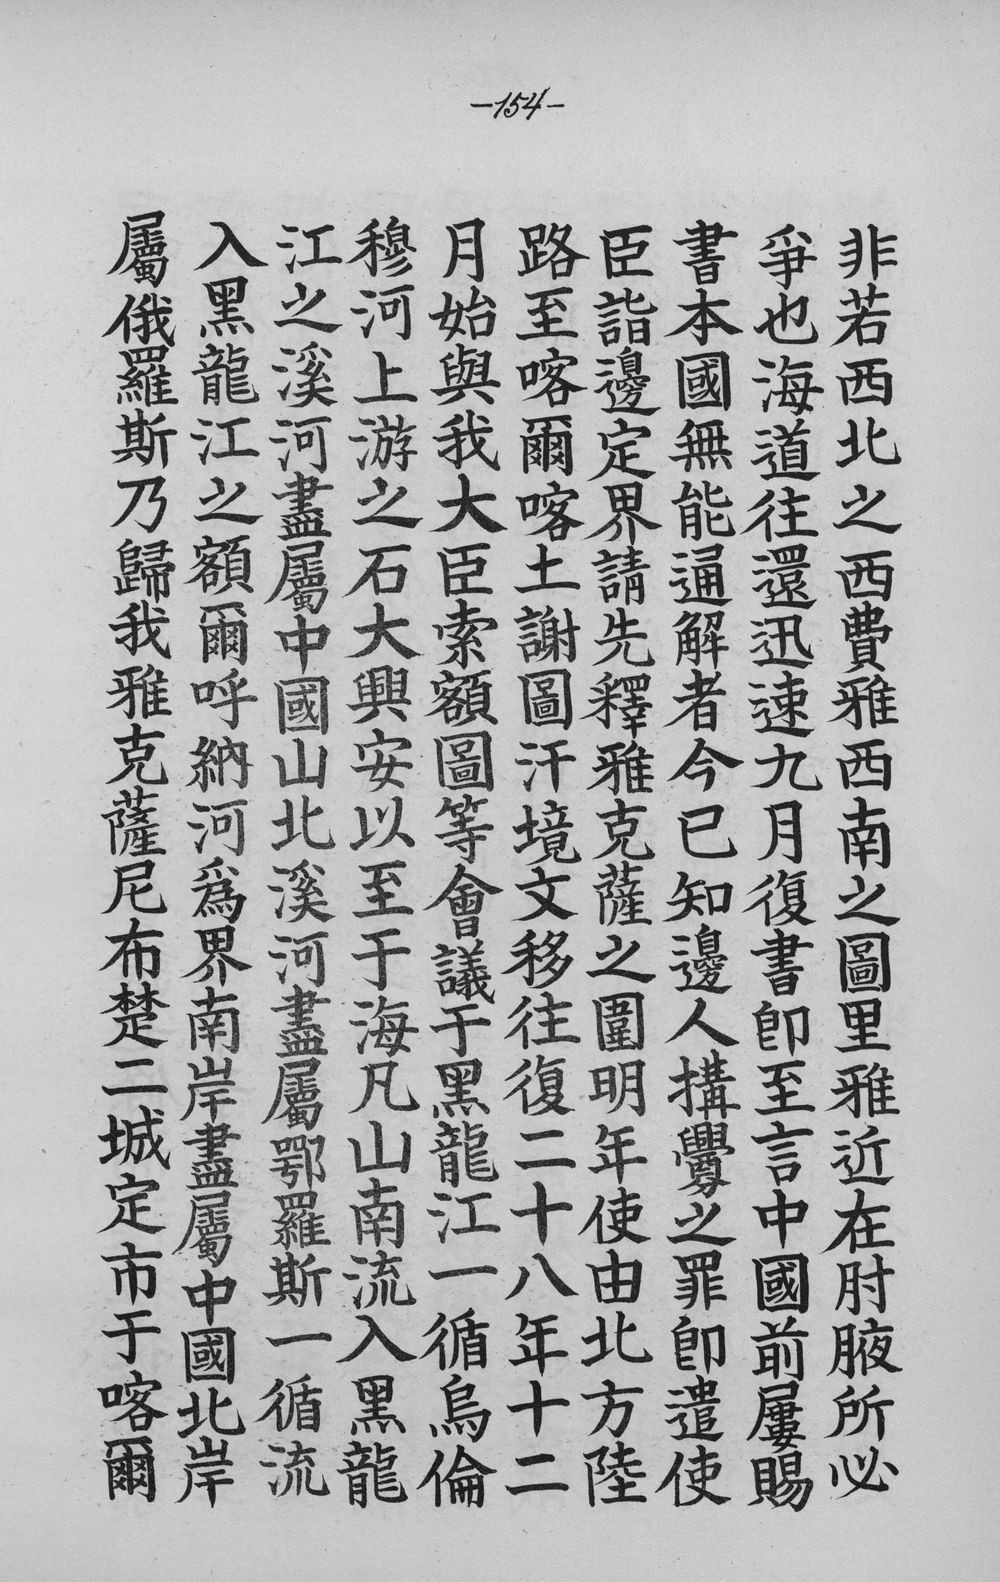 -154-
非若西北之西費雅西南之圖里雅近在肘腋所必
爭也海道往還迅速九月復書卽至言中國前屢賜
書本國無能通解者今已知邊人搆釁之罪卽遣使
臣詣邊定界請先釋雅克薩之圍明年使由北方陸
路至喀爾喀土謝圖汗境文移往復二十八年十二
月始與我大臣索額圖等會議于黑龍江一循烏倫
穆河上游之石大興安以至于海凡山南流入黑龍
江之溪河盡屬中國山北溪河盡屬鄂羅斯一循流
入黑龍江之額爾呼納河爲界南岸盡屬中國北岸
屬俄羅斯乃歸我雅克薩尼布楚二城定市于喀爾